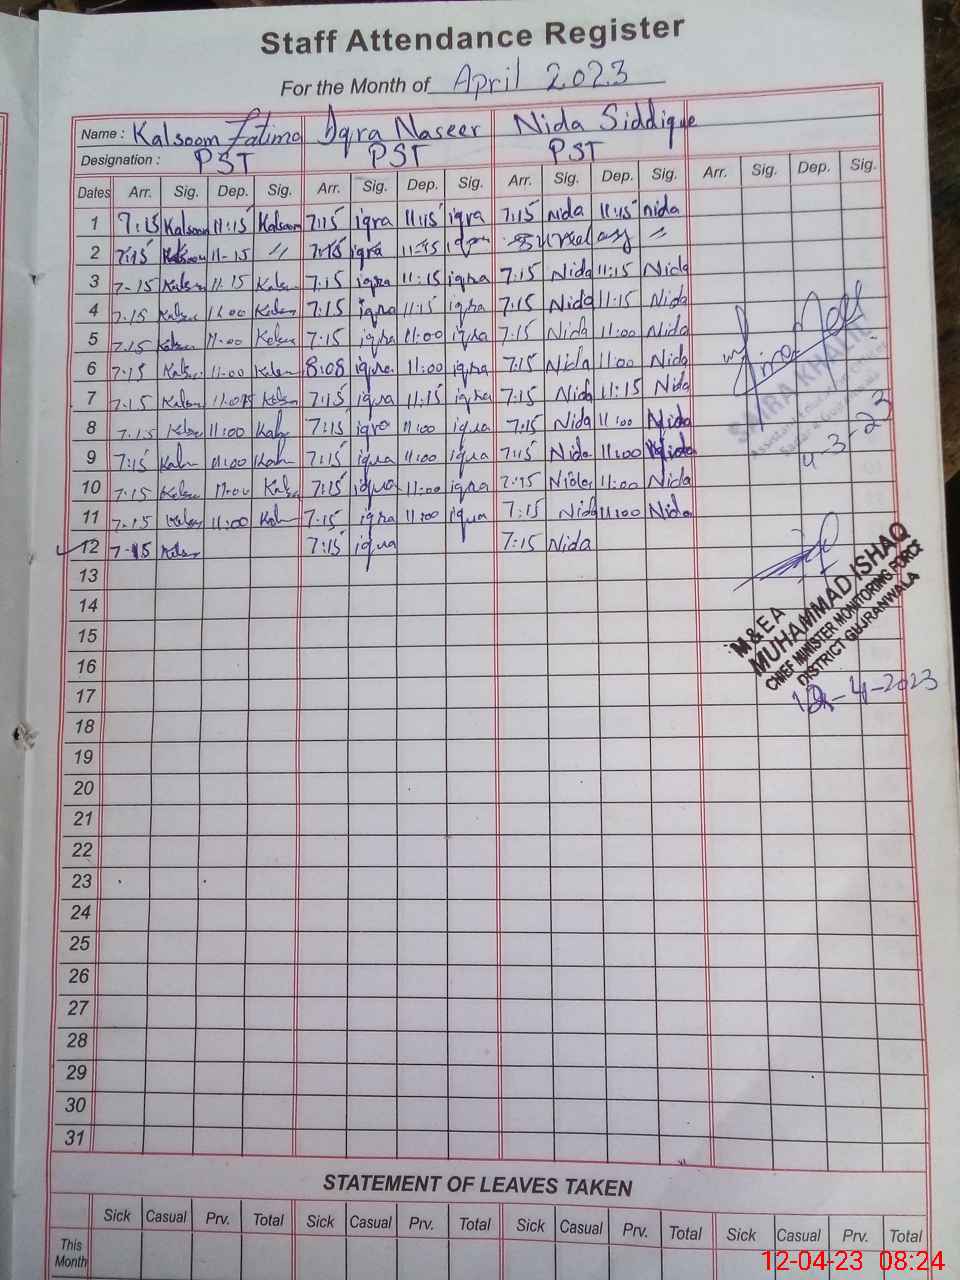 Staff Attendance Register
For the Month of April 2023
Name : Kalsoom Fatima Iqra Naseer Nida Siddique
Designation : PST PST PST
Dates Arr. Sig. Dep. Sig. Arr. Sig. Dep. Sig. Arr. Sig. Dep. Sig. Arr. Sig. Dep. Sig.
1 7:15 Kalsoom 11:15 Kalsoom 7:15 iqra 11:15 iqra 7:15 nida 11:15 nida
2 7:15 11-15 " 7:15 iqra 11:15 iqra
3 7-15 Kalsm 11.15 Kalsm 7:15 iqra 11:15 iqra 7:15 Nida 11:15 Nida
4 7.15 11:00 7:15 iqra 11:15 iqra 7:15 Nida 11:15 Nida
5 7.15 11:00 7:15 iqra 11:00 iqra 7:15 Nida 11:00 Nida
6 7.15 11:00 8:08 iqra 11:00 iqra 7:15 Nida 11:00 Nida
7 7.15 7:15 iqra 11:15 iqra 7:15 Nida 11:15 Nida
8 7.15 11:00 7:15 iqra 11:00 iqra 7:15 Nida 11:00 Nida
9 7:15 11:00 7:15 iqra 11:00 iqra 7:15 Nida 11:00 Nida
10 7.15 11:00 7:15 iqra 11:00 iqra 7:15 Nida 11:00 Nida
11 7-15 11:00 7:15 iqra 11:00 iqra 7:15 Nida 11:00 Nida
12 7-15 7:15 iqra 7:15 Nida
SAIRA KHALIL
M & E A
MUHAMMAD ISHAQ
CHIEF MINISTER MONITORING FORCE
DISTRICT GUJRANWALA
12-4-2023
13
14
15
16
17
18
19
20
21
22
23
24
25
26
27
28
29
30
31
STATEMENT OF LEAVES TAKEN
Sick Casual Prv. Total Sick Casual Prv. Total Sick Casual Prv. Total Sick Casual Prv. Total
This
Month
12-04-23 08:24